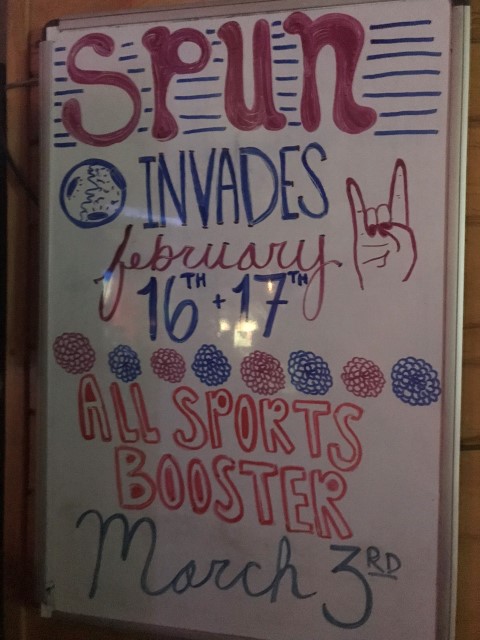 Spun
INVADES
february
16TH + 17TH
ALL SPORTS
BOOSTER
March 3RD